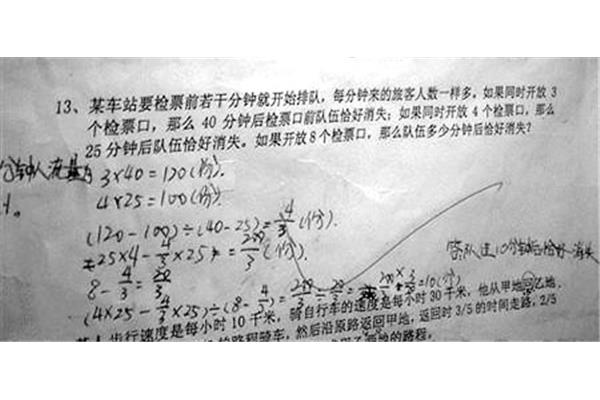 13、某车站要检票前若干分钟就开始排队，每分钟来的旅客人数一样多。如果同时开放 3
个检票口，那么 40 分钟后检票口前队伍恰好消失；如果同时开放 4 个检票口，那么
25 分钟后队伍恰好消失。如果开放8个检票口，那么队伍多少分钟后恰好消失？
3×40=120(份).
4×25=100(份).
(120-100)÷(40-25)=4/3(份).
25×4-4/3×25=200/3(份).
8-4/3=20/3
(4×25-4/3×25)÷(8-4/3)=200/3÷20/3=200/3×3/20=10(分)
答队过10分钟后恰好消失
步行速度是每小时 10 千米，骑自行车的速度是每小时 30 千米，他从甲地回乙地.
的路程骑车，然后沿原路返回甲地，返回时 3/5 的时间走路，2/5
的路程，